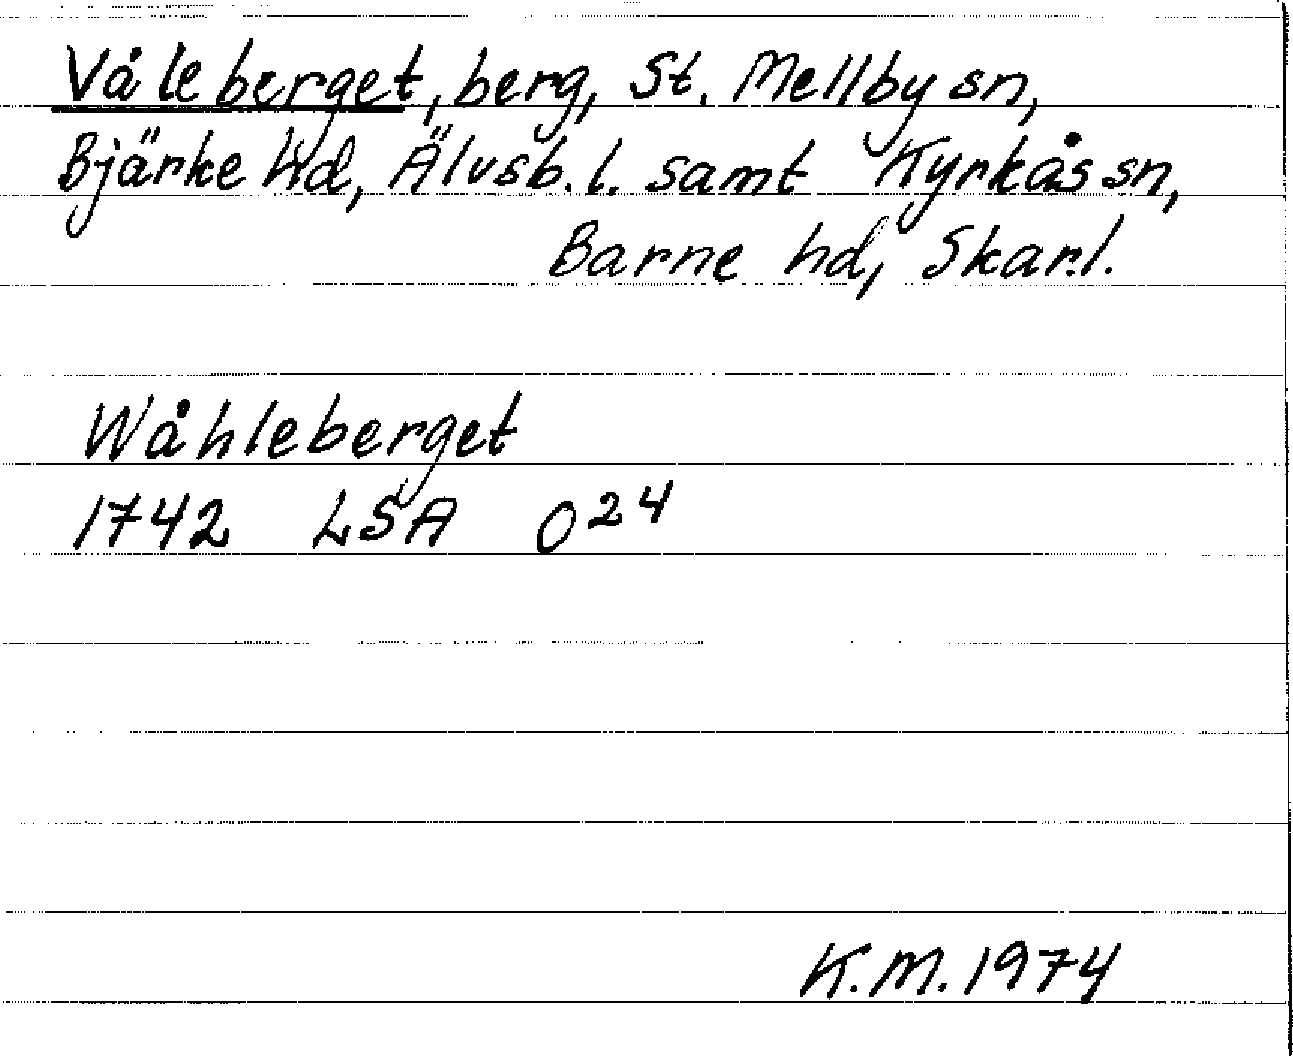 Våleberget, berg, St. Mellby sn,
Bjärke hd, Älvsb. l. samt Kyrkås sn,
Barne hd, Skar.l.
Wåhleberget
1742 LSA O24
K.M. 1974